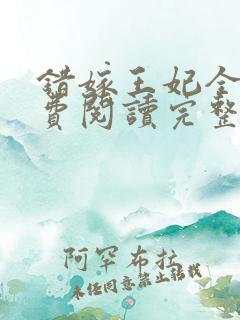 錯嫁王妃全
費閱讀完整
阿罕布拉
未經同意禁止轉載